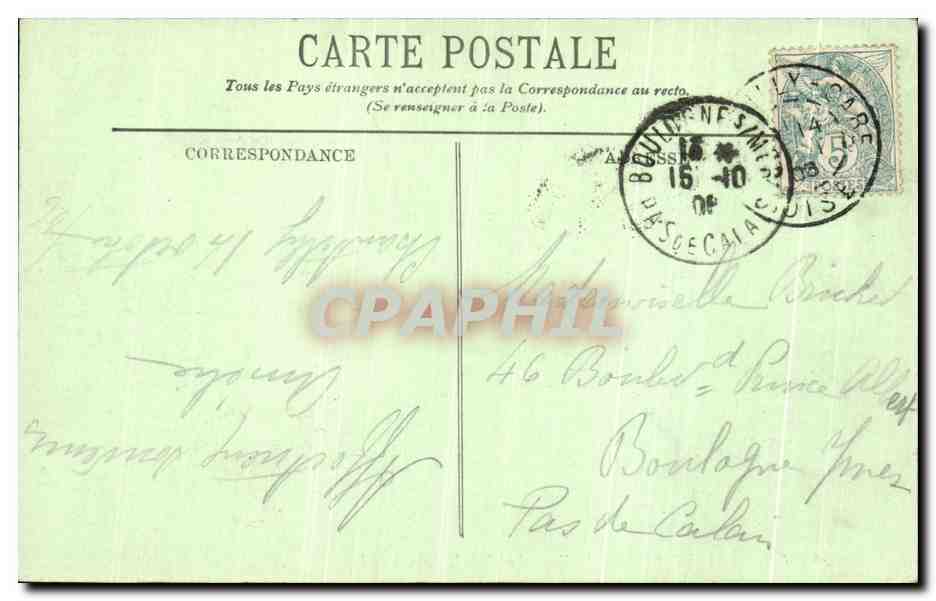 CARTE POSTALE
Tous les Pays étrangers n'acceptent pas la Correspondance au recto.
(Se renseigner à la Poste).
CORRESPONDANCE
ADRESSE
LLY - GARE
OISE
BOULOGNE S/MER
13 *
15 -10
PAS DE CALAIS
CPAPHIL
Mademoiselle
46 Boulevd Prince Albert
Boulogne s/mer
Pas de Calais
Chantilly 14 octobre
Amélie
Affectueux souvenirs